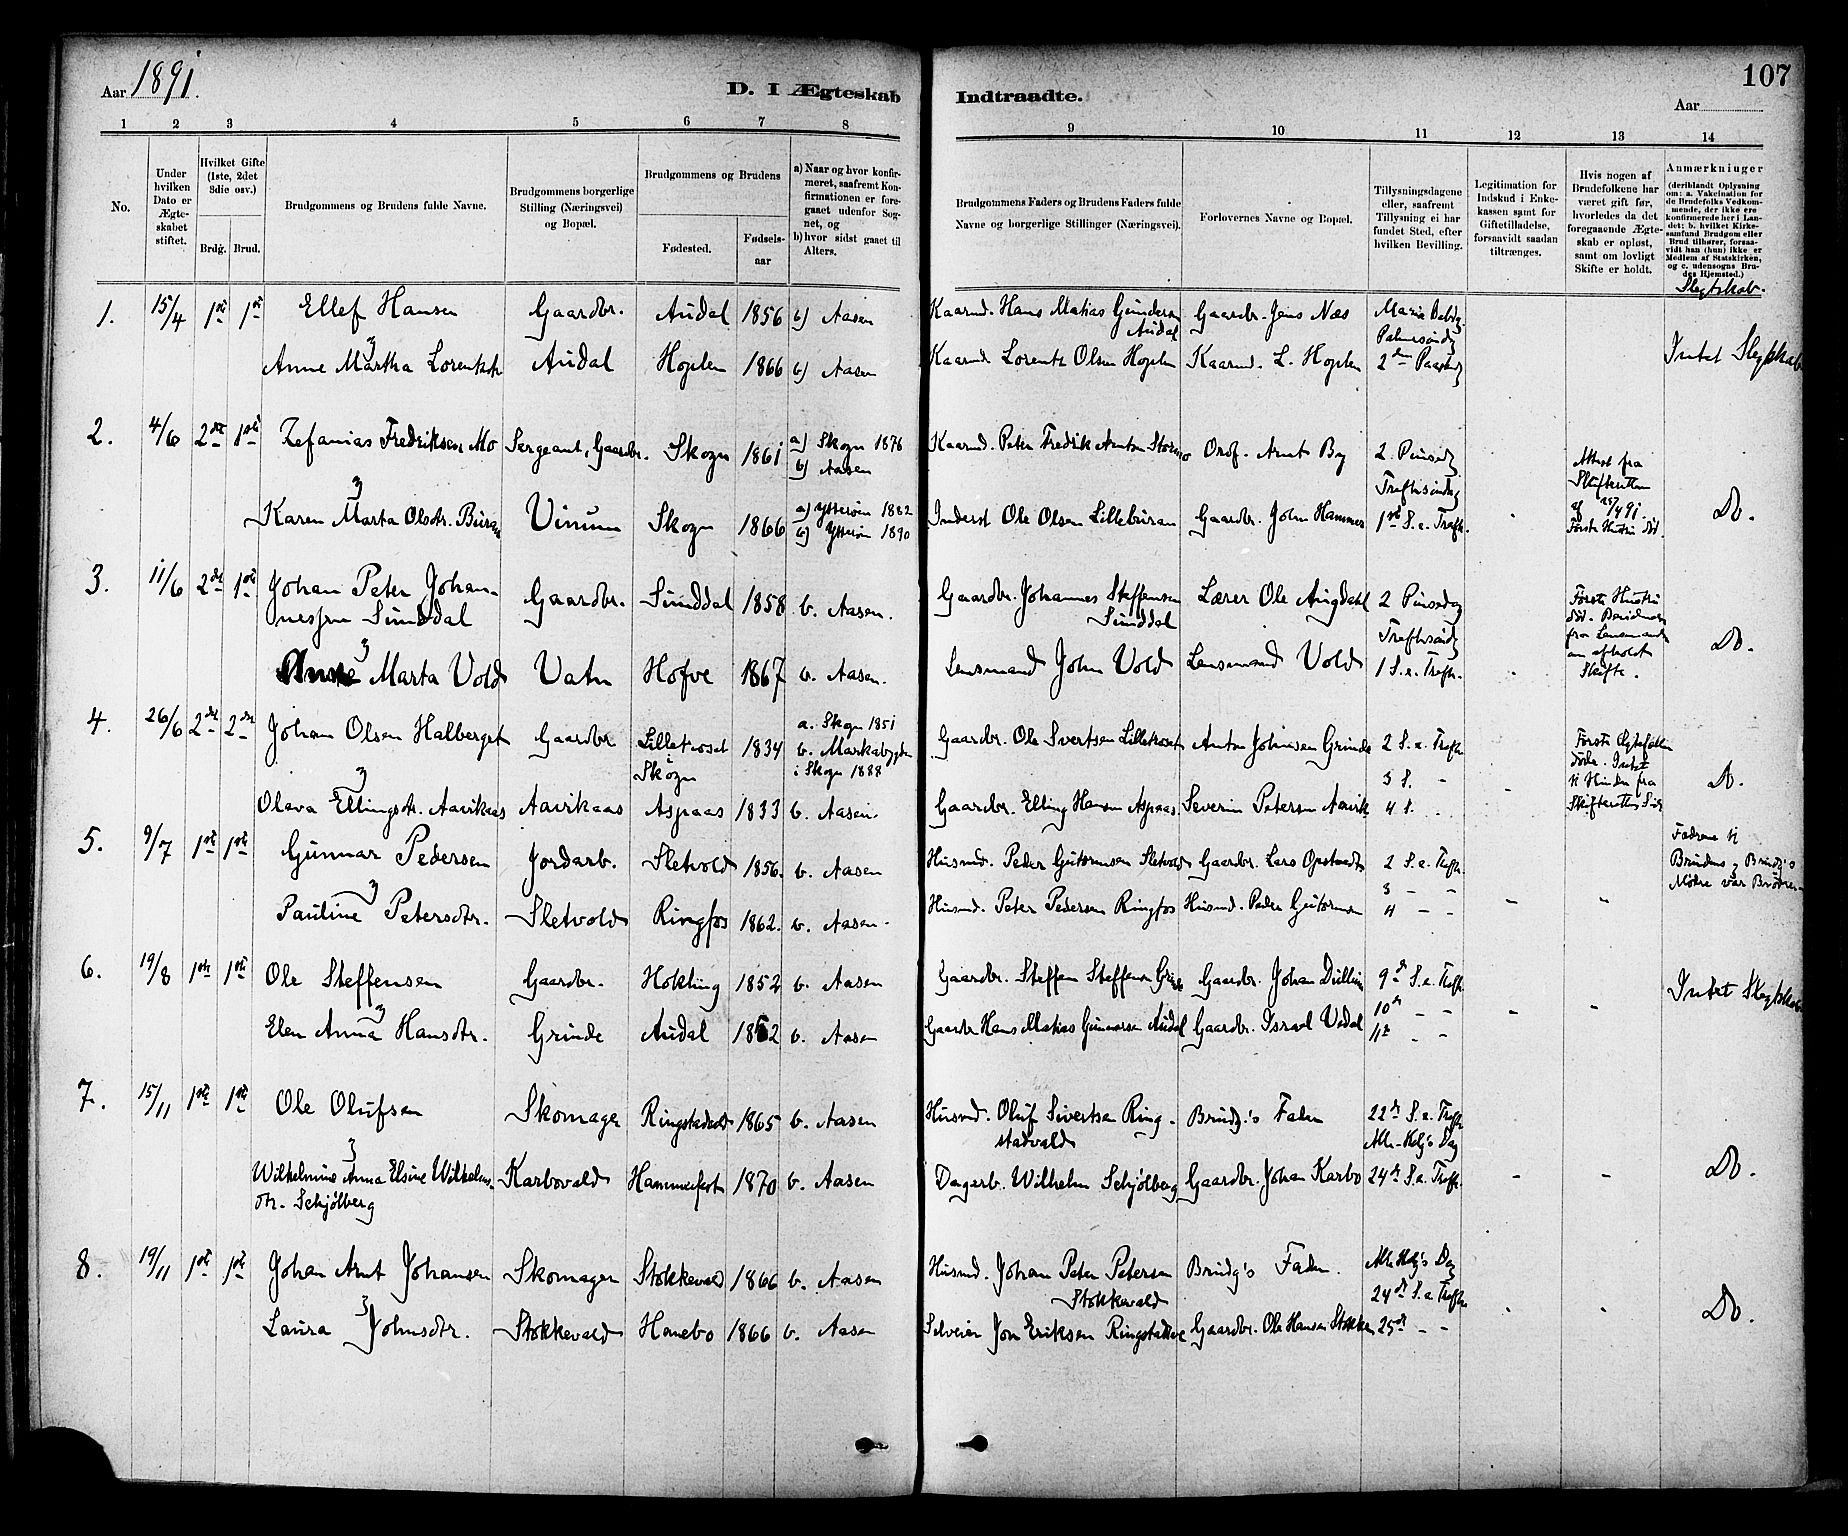 Aar 1891.
D. I Ægteskab Indtraadte.
107
Aar
1 2 3 4 5 6 7 8 9 10 11 12 13 14
No.
Under hvilken Dato er Ægteskabet stiftet.
Hvilket Gifte (1ste, 2det 3die osv.)
Brdg. Brud.
Brudgommens og Brudens fulde Navne.
Brudgommens borgerlige Stilling (Næringsvei) og Bopæl.
Brudgommens og Brudens
Fødested. Fødselsaar
a) Naar og hvor konfirmeret, saafremt Konfirmationen er foregaaet udenfor Sognet, og
b) hvor sidst gaaet til Alters.
Brudgommens Faders og Brudens Faders fulde Navne og borgerlige Stillinger (Næringsvei).
Forlovernes Navne og Bopæl.
Tillysningsdagene eller, saafremt Tillysning ei har fundet Sted, efter hvilken Bevilling.
Legitimation for Indskud i Enkekassen samt for Giftetilladelse, forsaavidt saadan tiltrænges.
Hvis nogen af Brudefolkene har været gift før, hvorledes da det foregaaende Ægteskab er opløst, samt om lovligt Skifte er holdt.
Anmærkninger
(deriblandt Oplysning om: a. Vakcination for de Brudefolks Vedkommende, der ikke ere konfirmerede her i Landet; b. hvilket Kirkesamfund Brudgom eller Brud tilhører, forsaavidt han (hun) ikke er Medlem af Statskirken, og c. udensogns Brudes Hjemsted.)
Slegtskab.
1. 15/4 1ste 1ste Ellef Hansen Gaardbr. Audal 1856 b) Aasen Kaarmd. Hans Matias Gunderen Audal Gaardbr. Jens Næs Palmesøndg
Anne Martha Lorentsdtr Audal Hoplen 1866 b) Aasen Kaarmd. Lorents Olsen Hoplen Kaarmd. L. Hoplen 2den Paaskedg Intet Slegtskab
2. 4/6 2det 1ste Zefanias Fredriksen Mo Sergeant, Gaardbr. Skogn 1861 a) Skogn 1876 b) Aasen Kaarmd. Peter Fredrik Arntsen Ordf. Arnt By 2. Pinsedg
Karen Marta Olsdtr. Buran Vinum Skogn 1866 a) Ytterøen 1882 b) Ytterøen 1890 Inderst Ole Olsen Lilleburan Gaardbr. John Hammer Trefh.søndag 1ste S. e. Trefh. Attest fra Skifteretten af 25/4 91. Første Hustru død. Do.
3. 11/6 2det 1ste Johan Peter Johannessen Sunddal Gaardbr. Sunddal 1858 b. Aasen. Gaardbr. Johannes Steffensen Sunddal Lærer Ole Augdahl 2 Pinsedag
Anne Marta Vold Vatn Hofve 1867 b. Aasen. Lensmand John Vold Lensmand Vold Trefh.søndg 1 S. e. Trefh. Første Hustru død. fra Lensmanden om afholdt Skifte. Do.
4. 26/6 2det 2det Johan Olsen Halberget Gaardbr Lilletroset Skogn 1834 a. Skogn 1851 b. Markabygden i Skogn 1888 Gaardbr. Ole Svertsen Lilletroset Anton Johnsen Grinde 2 S. e. Trefh.
3 S. -
Olava Ellingsdtr. Aavikaas Aavikaas Aspaas 1833 b. Aasen. Gaardbr. Elling Hansen Aspaas. Severin Petersen Aavik 4 S. Første Ægtefæller døde. Intet til Hinder fra Skifterettens Side Do.
5. 9/7 1ste 1ste Gunnar Pedersen Jordarb. Sletvold 1856. b. Aasen Husmd. Peder Guttormsen Sletvold Gaardbr. Lars Opstvedt 2 S. e. Trefh.
3 - -
Pauline Petersdtr. Sletvold Ringfos 1862. b. Aasen. Husmd. Peter Pedersen Ringfos Husmd. Peder Guttormsen 4 - - Fædrene til Brudens og Brudg's Mødre var Brødre.
6. 19/8 1ste 1ste Ole Steffensen Gaardbr. Hokling 1852 b. Aasen Gaardbr. Steffen Steffensen Grinde Gaardbr. Johan Dullum 9de S. e. Trefh.
10de - -
Elen Anna Hansdtr. Grinde Audal 1862 b. Aasen Gaardbr Hans Matias Gunnarsen Audal Gaardbr. Israel Vedal 11te - - Intet Slegtskab
7. 15/11 1ste 1ste Ole Olufsen Skomager Ringstadvald 1865 b. Aasen Husmd. Oluf Sivertsen Ringstadvald Brudg.'s Fader 22de S. e. Trefh. Alle-Helg's Dag
Wilhelmine Anna Elsine Wilhelmsdtr. Schjølberg Karbovald Hammerfest 1870 b. Aasen Dagarb. Wilhelm Schjølberg Gaardbr. Johan Karbo 24de S. e. Trefh. Do.
8. 19/11 1ste 1ste Johan Arnt Johansen Skomager Stokkevald 1866 b. Aasen Husmd. Johan Peter Petersen Stokkevald Brudg's Fader. Alle Helg's Dag
24de S. e. Trefh
Laura Johnsdtr. Stokkevald Hanebo 1866 b. Aasen Selveier Jon Eriksen Gaardbr. Ole Hansen Stokken 25de - - Do.